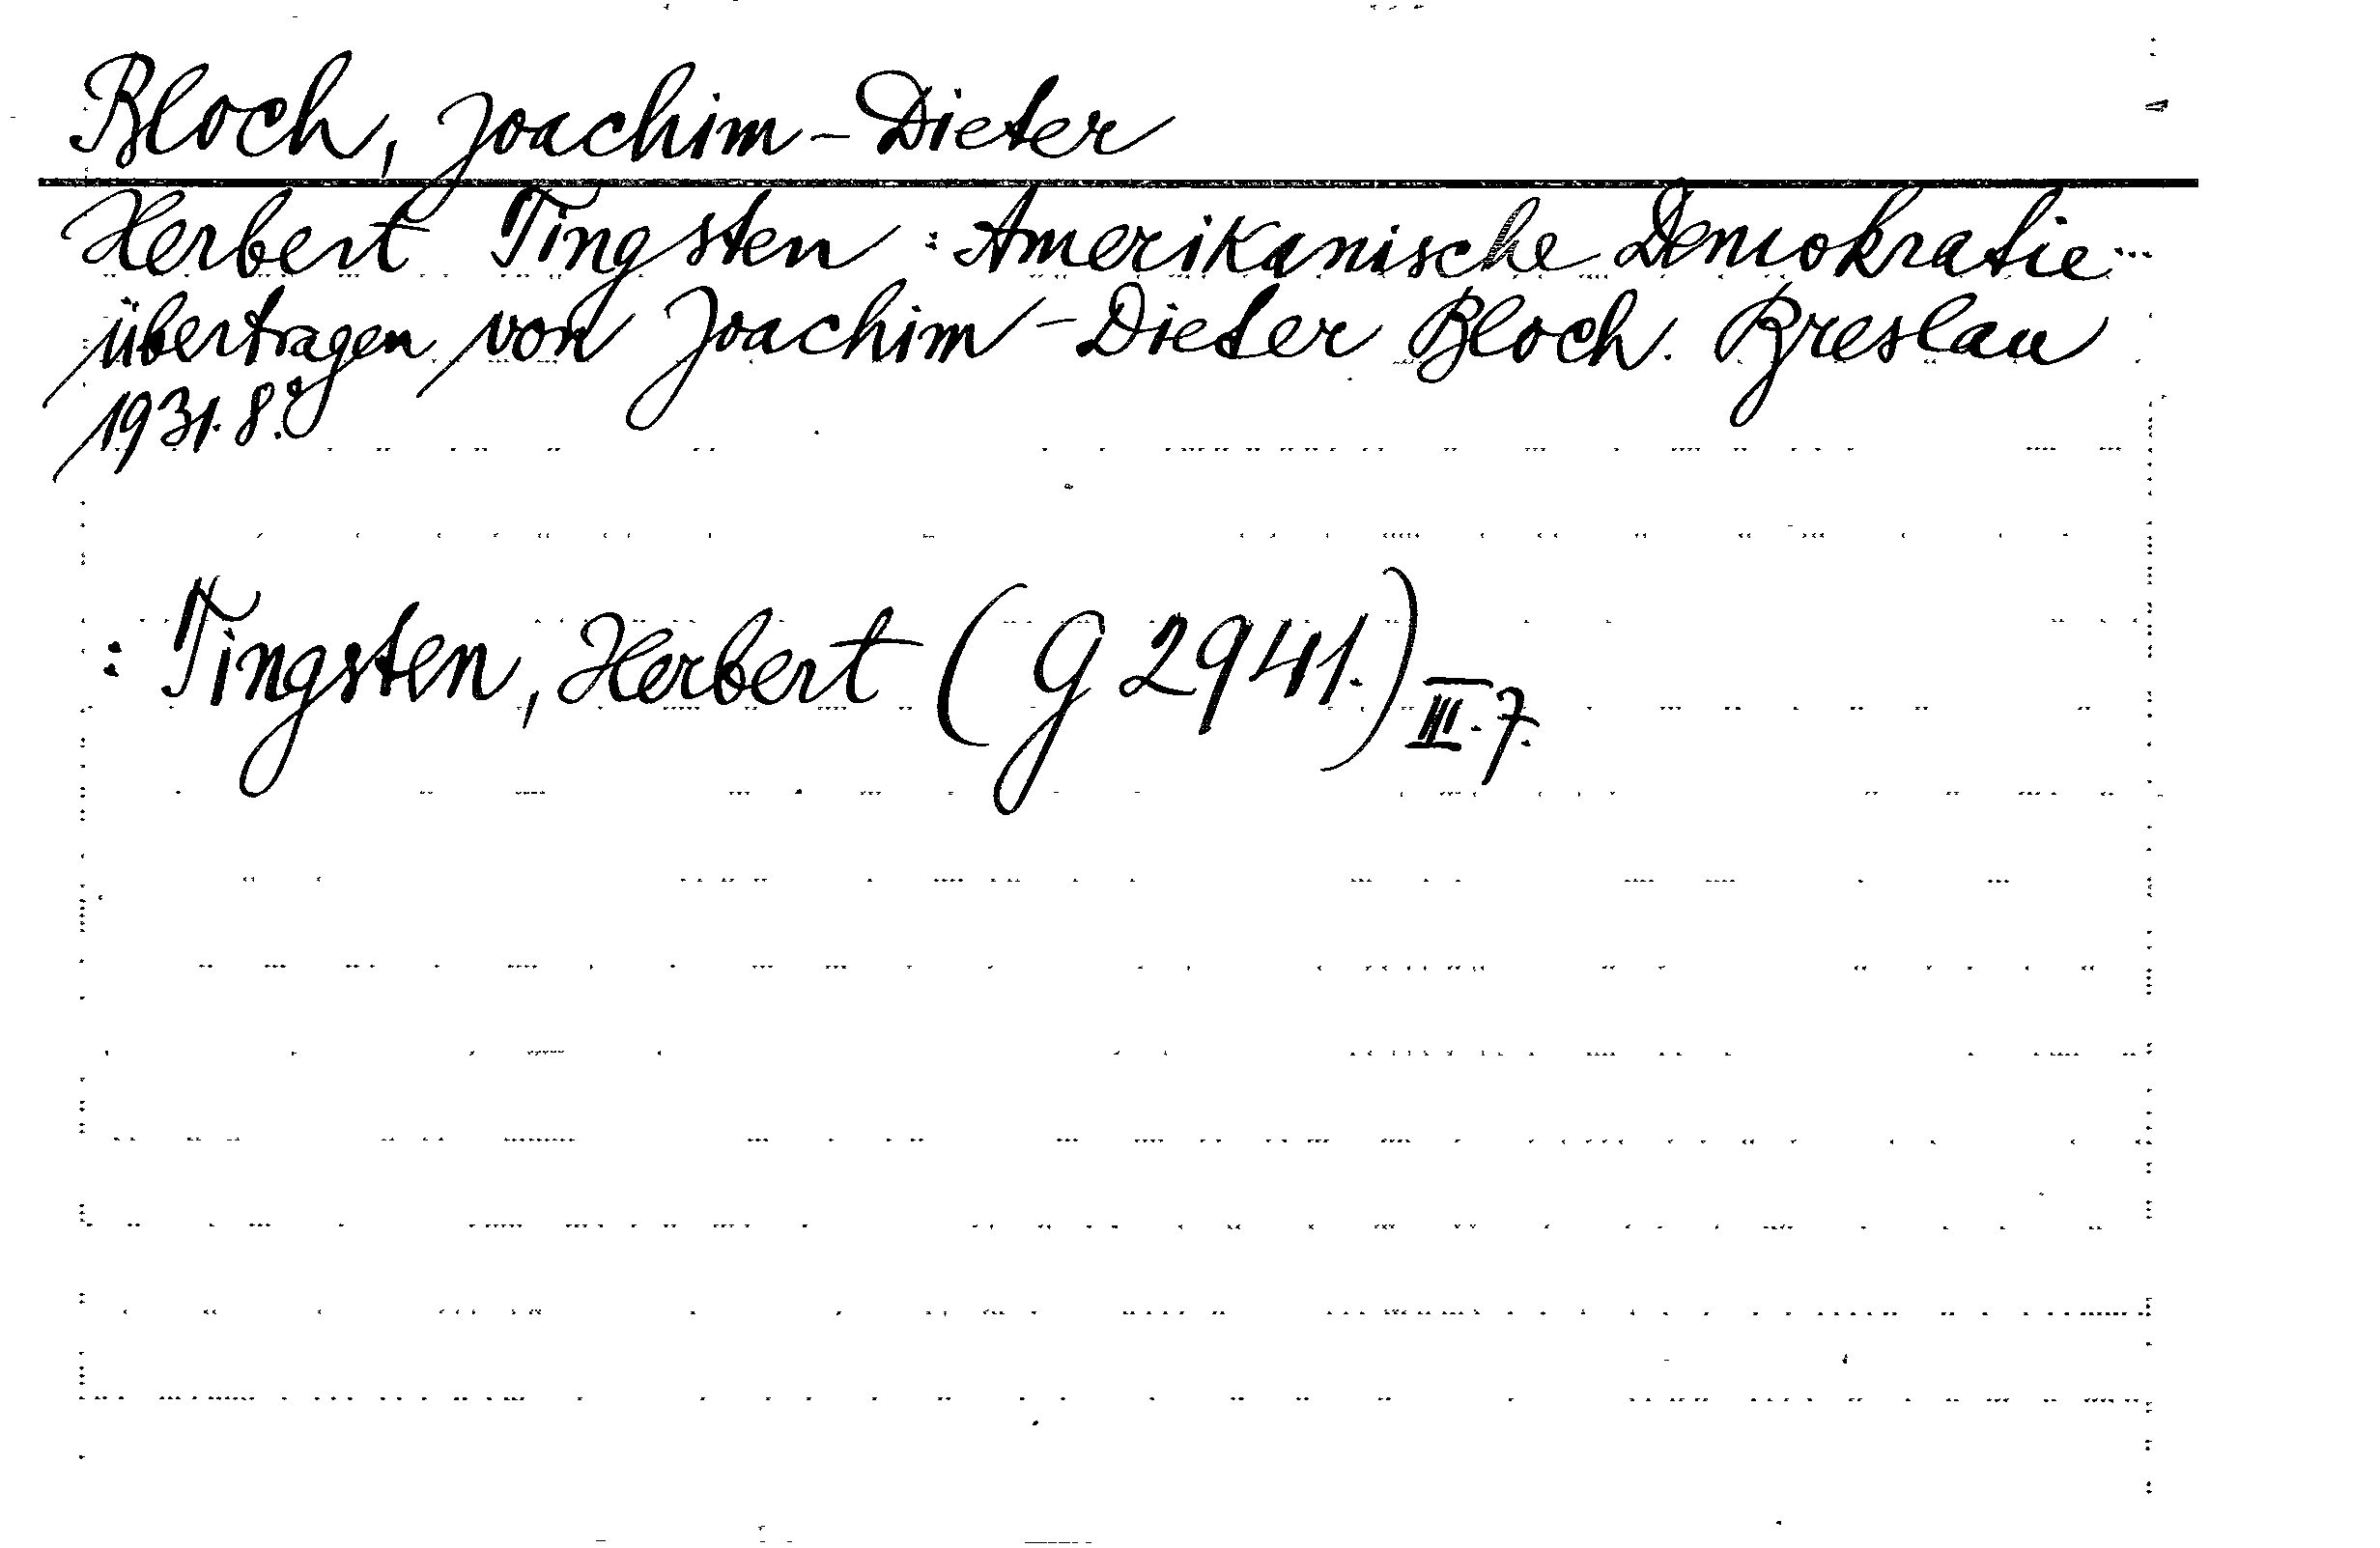 Bloch, Joachim-Dieter
Herbert Tingsten: Amerikanische Demokratie...
übertragen von Joachim-Dieter Bloch. Breslau
1931. 8.°
: Tingsten, Herbert (G 2941.) III. 7.